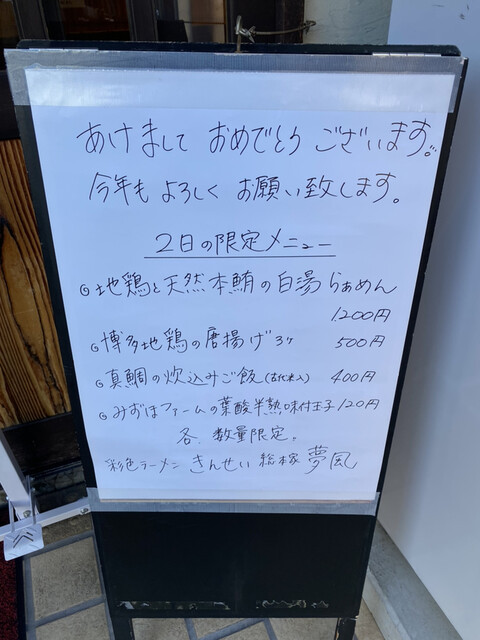 あけまして おめでとう ございます。
今年も よろしく お願い致します。
2日の限定メニュー
◎地鶏と天然本鮪の白湯らぁめん
1200円
◎博多地鶏の唐揚げ3ヶ 500円
◎真鯛の炊込みご飯(古代米入) 400円
◎みずほファームの葉酸半熟味付玉子120円
各、数量限定。
彩色ラーメン きんせい 総本家 夢風